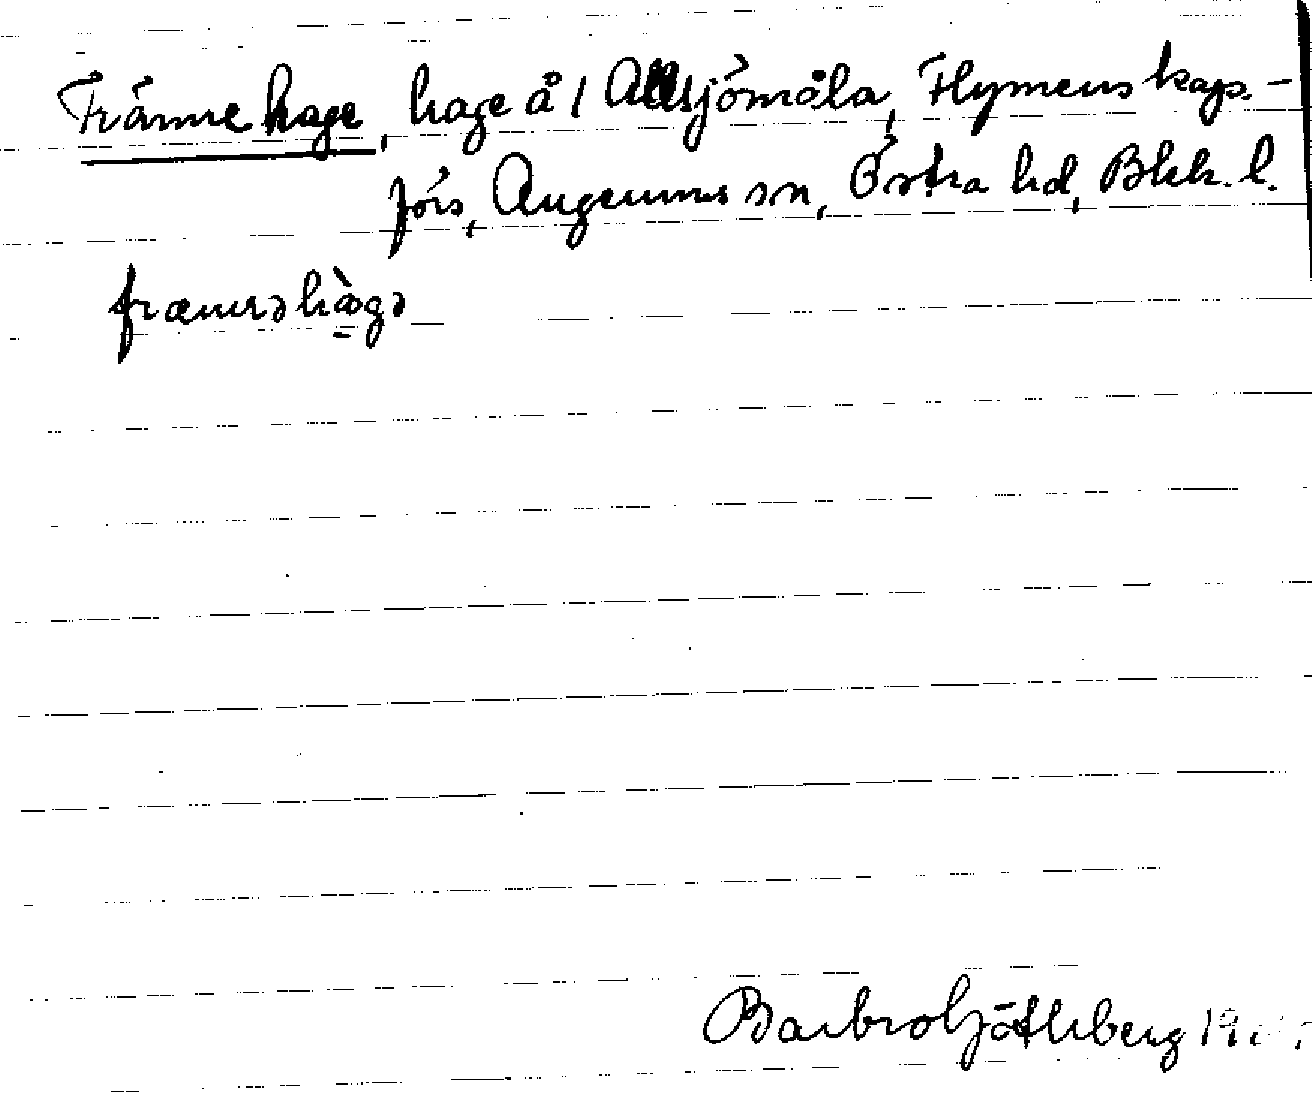 Främre hage, hage å 1 Allsjömåla, Flymens kaps-
förs, Augerums sn, Östra hd, Blek. l.
fræmrə hàgə
Barbro Göthberg 19